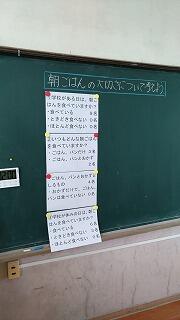 朝ごはんの大切さについて考えよう
学校がある日は、朝ごはんを食べていますか?
・食べている
・ときどき食べない 0名
・ほとんど食べない 0名
いつもどんな朝ごはんを食べていますか?
・ごはん、パンだけ
・ごはん、パンとおかず
2名
・ごはん、パンとおかず
4名
・おかずだけで、ごはん、パンは食べていない 0名
学校が休みの日は、朝ごはんを食べていますか?
・食べている
・ときどき食べない
・ほとんど食べない